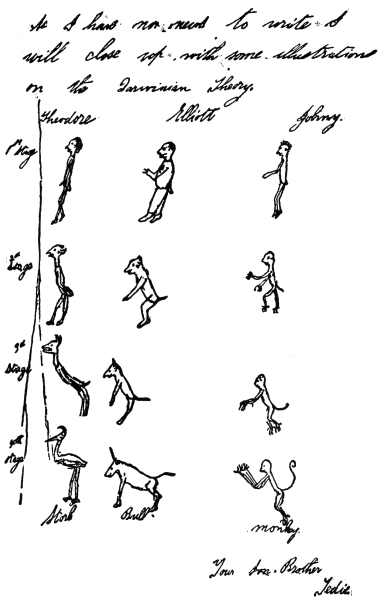 As I have no news to write I
will close up with some illustrations
on the Darwinian Theory.
Theodore Elliott Johny.
1st Stage
2nd Stage
3rd Stage
4th Stage
Stork Bull monkey
Your Brother
Tedie